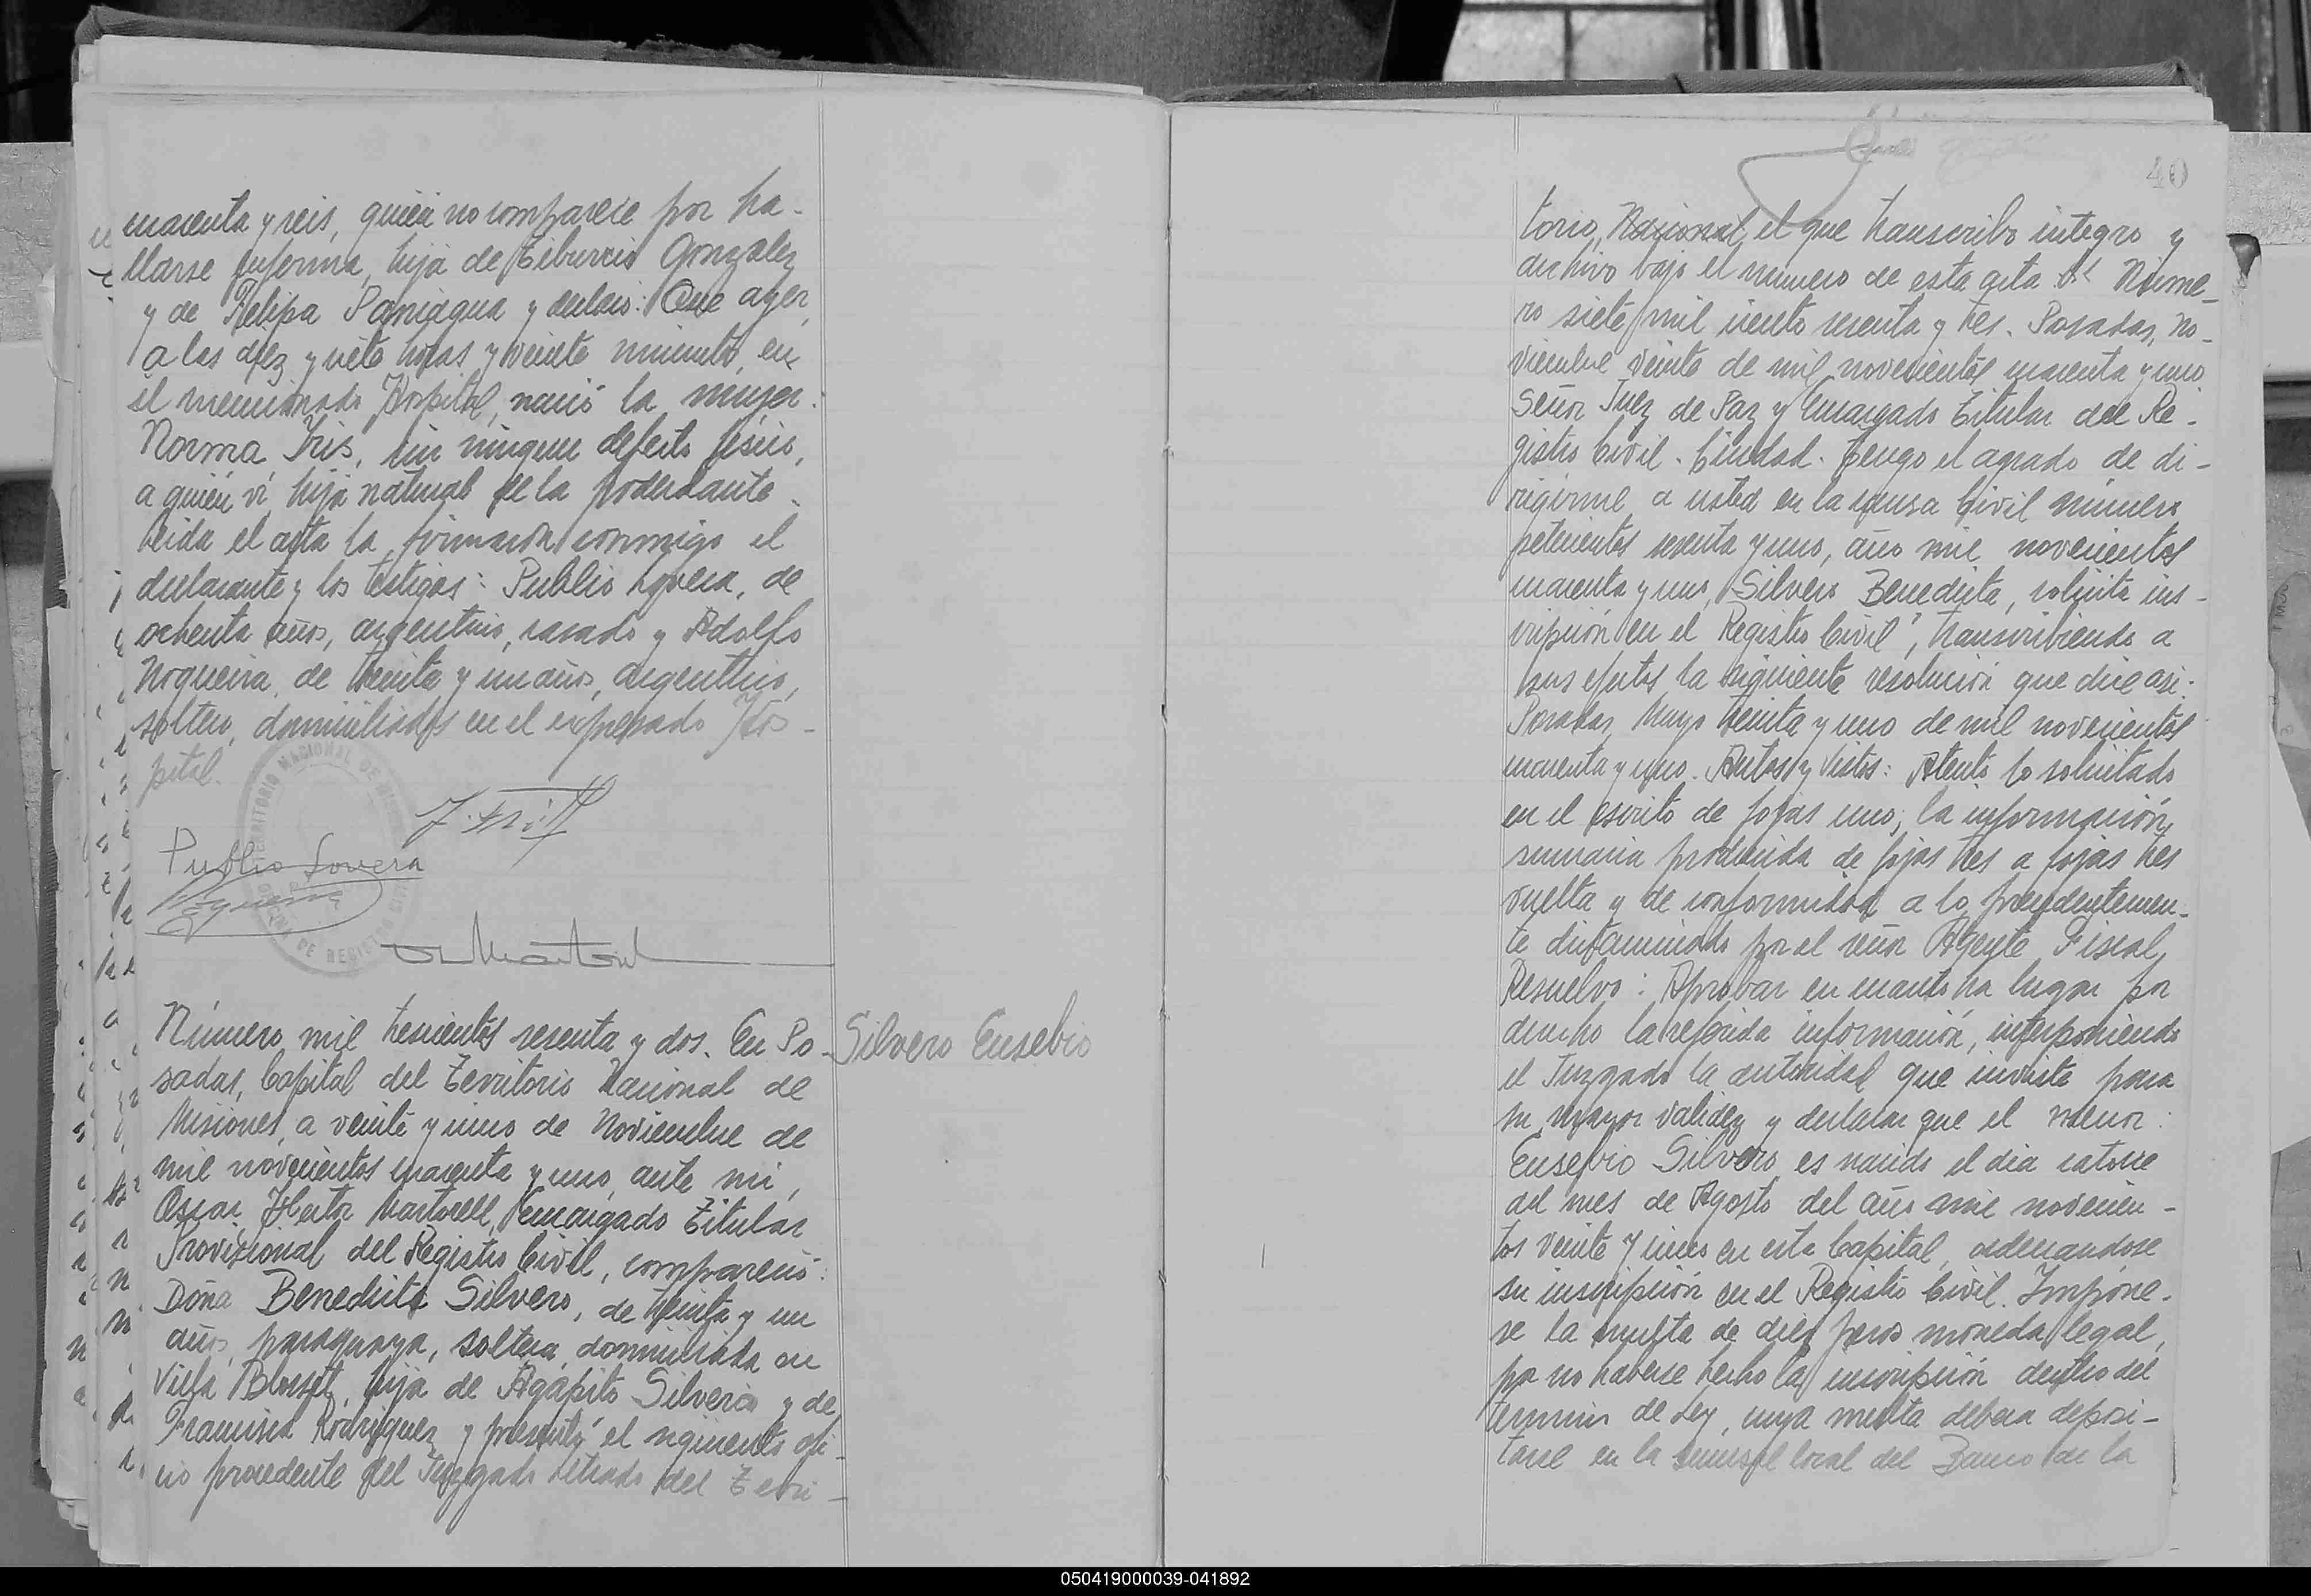 cuarenta y seis, quien no comparece por ha-
llarse enferma, hija de Tiburcio Gonzalez
y de Felipa Paniagua y declaró: Que ayer,
a las diez y siete horas y veinte minutos, en
el mencionado Hospital, nació la mujer:
Norma Iris, sin ningun defecto fisico,
a quién ví, hija natural de la poderdante.
Leida el acta la firmaron conmigo el
declarante y los testigos: Publio Lovera, de
ochenta años, argentino, casado y Adolfo
Nogueira, de treinta y un años, argentino,
soltero, domiciliados en el expresado Hos-
pital.
TERRITORIO NACIONAL DE
DE REGISTRO CIVIL
Publio Lovera
Nogueira
Número mil trescientos sesenta y dos. En Po-
Silvero Eusebio
sadas, Capital del Territorio Nacional de
Misiones, a veinte y uno de Noviembre de
mil novecientos cuarenta y uno, ante mi,
Oscar Hector Martorell, Encargado Titular
Provisional del Registro Civil, compareció:
Doña Benedicta Silvero, de treinta y un
años, paraguaya, soltera, domiciliada en
Villa Blosset, hija de Agapito Silvero y de
Francisca Rodriguez y presentó el siguiente ofi-
cio procedente del Juzgado Letrado del Terri-
40
torio Nacional, el que transcribo integro y
archivo bajo el número de esta acta: Núme-
ro siete mil ciento sesenta y tres. Posadas, no-
viembre veinte de mil novecientos cuarenta y uno
Señor Juez de Paz y Encargado Titular del Re-
gistro Civil. Ciudad. Tengo el agrado de di-
rigirme a usted en la causa Civil número
setecientos sesenta y uno, año mil novecientos
cuarenta y uno, Silvero Benedicta, solicita ins-
cripción en el Registro Civil", transcribiendo a
sus efectos la siguiente resolución que dice asi:
Posadas, Mayo treinta y uno de mil novecientos
cuarenta y uno. Autos y Vistos: Atento lo solicitado
en el escrito de fojas uno, la información
sumaria producida de fojas tres a fojas tres
vuelta y de conformidad a lo precedentemen-
te dictaminado por el señor Agente Fiscal,
Resuelvo: Aprobar en cuanto ha lugar por
derecho la referida información, interponiendo
el Juzgado la autoridad que inviste para
su mayor validez y declarar que el menor:
Eusebio Silvero es nacido el dia catorce
del mes de Agosto del año mil novecien-
tos veinte y uno en esta Capital, ordenandose
su inscripción en el Registro Civil. Impóne-
se la multa de diez pesos moneda legal,
por no haberse hecho la inscripción dentro del
termino de Ley, cuya multa debera deposi-
tarse en la sucursal local del Banco de la
050419000039-041892